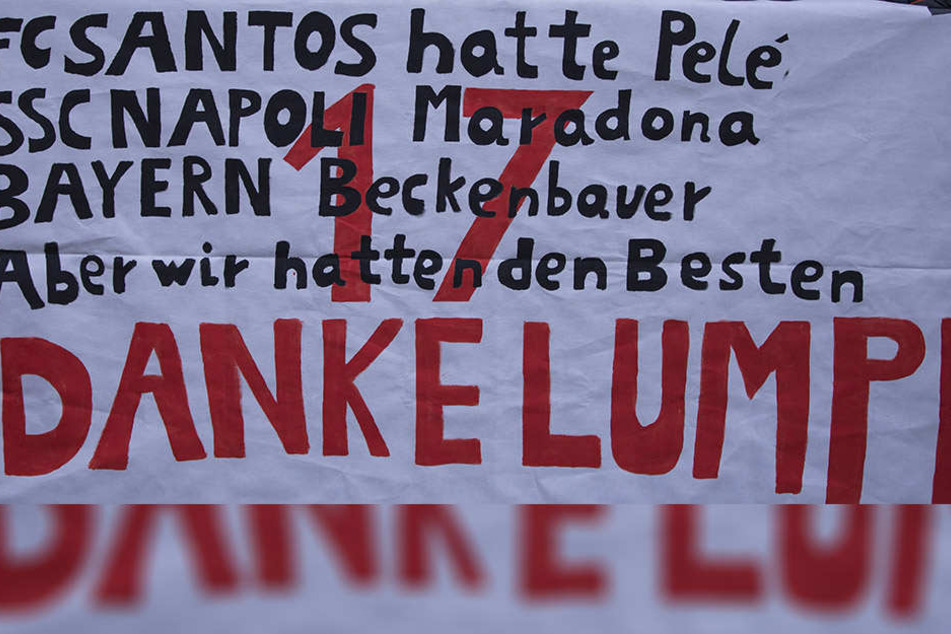 FC SANTOS hatte Pelé
SSC NAPOLI Maradona
BAYERN Beckenbauer
17
Aber wir hatten den Besten
DANKE LUMPI